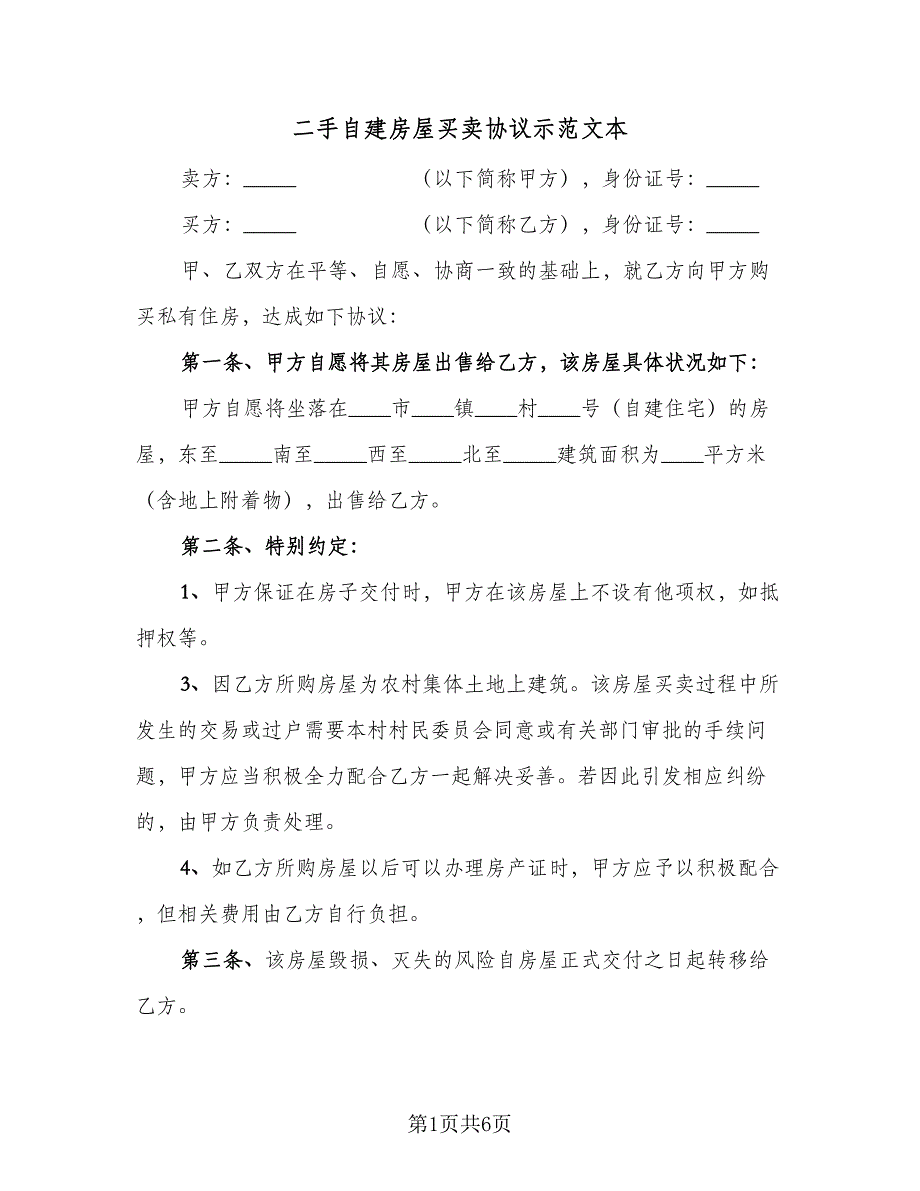 二手自建房屋买卖协议示范文本
卖方：_____ （以下简称甲方），身份证号：_____
买方：_____ （以下简称乙方），身份证号：_____
甲、乙双方在平等、自愿、协商一致的基础上，就乙方向甲方购
买私有住房，达成如下协议：
第一条、甲方自愿将其房屋出售给乙方，该房屋具体状况如下：
甲方自愿将坐落在____市____镇____村____号（自建住宅）的房
屋，东至_____南至_____西至_____北至_____建筑面积为____平方米
（含地上附着物），出售给乙方。
第二条、特别约定：
1、甲方保证在房子交付时，甲方在该房屋上不设有他项权，如抵
押权等。
3、因乙方所购房屋为农村集体土地上建筑。该房屋买卖过程中所
发生的交易或过户需要本村村民委员会同意或有关部门审批的手续问
题，甲方应当积极全力配合乙方一起解决妥善。若因此引发相应纠纷
的，由甲方负责处理。
4、如乙方所购房屋以后可以办理房产证时，甲方应予以积极配合
，但相关费用由乙方自行负担。
第三条、该房屋毁损、灭失的风险自房屋正式交付之日起转移给
乙方。
第1页共6页